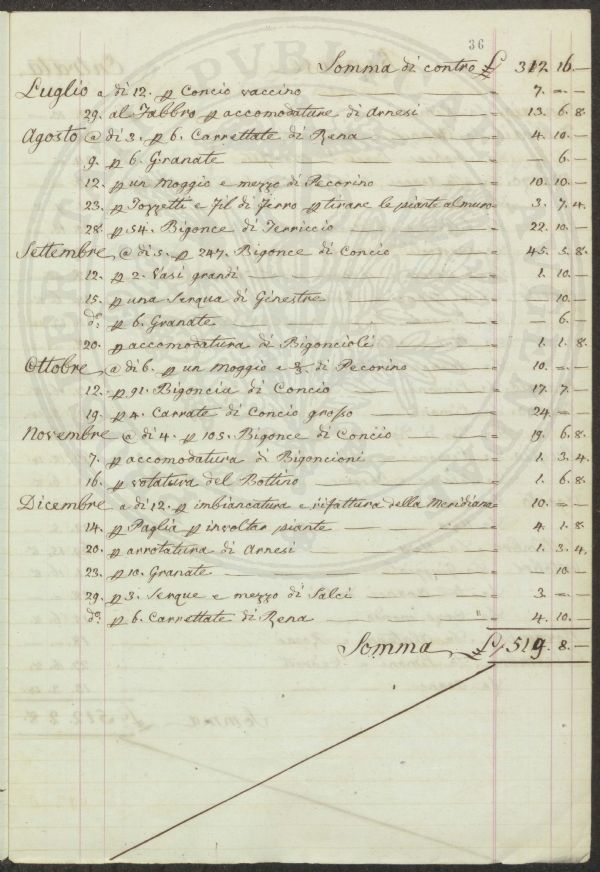 36
Somma di contro £ 312. 16. —
Luglio a dì 12. p Concio vaccino — = 7. = —
29. al Fabbro p accomodature di Arnesi — = 13. 6. 8.
Agosto @ dì 3. p 6. Carrettate di Rena — = 4. 10. —
9. p 6. Granate — = — 6. —
12. p un Moggio e mezzo di Pecorino — = 10. 10. —
23. p Tozzetti e Fil di Ferro p tirare le piante al muro = 3. 7. 4.
28. p 54. Bigonce di Terriccio — = 22. 10. —
Settembre @ dì 5. p 247. Bigonce di Concio — = 45. 5. 8.
12. p 2. Vasi grandi — = 1. 10. —
15. p una Serqua di Ginestre — = — 10. —
do. p 6. Granate — = — 6. —
20. p accomodatura di Bigoncioli — = 1. 1. 8.
Ottobre @ dì 6. p un Moggio e 2/3 di Pecorino — = 10. = —
12. p 91. Bigoncia di Concio — = 17. 7. —
19. p 4. Carrate di Concio grosso — = 24. = —
Novembre @ dì 4. p 105. Bigonce di Concio — = 19. 6. 8.
7. p accomodatura di Bigoncioni — = 1. 3. 4.
16. p votatura del Bottino — = 1. 6. 8.
Dicembre a dì 12. p imbiancatura e rifattura della Meridiana = 10. = —
14. p Paglia p involtar piante — = 4. 1. 8.
20. p arrotatura di Arnesi — = 1. 3. 4.
23. p 10. Granate — = — 10. —
29. p 3. Serque e mezzo di Salci — = 3. = —
do. p 6. Carrettate di Rena — " = 4. 10. —
Somma £ 519. 8. —